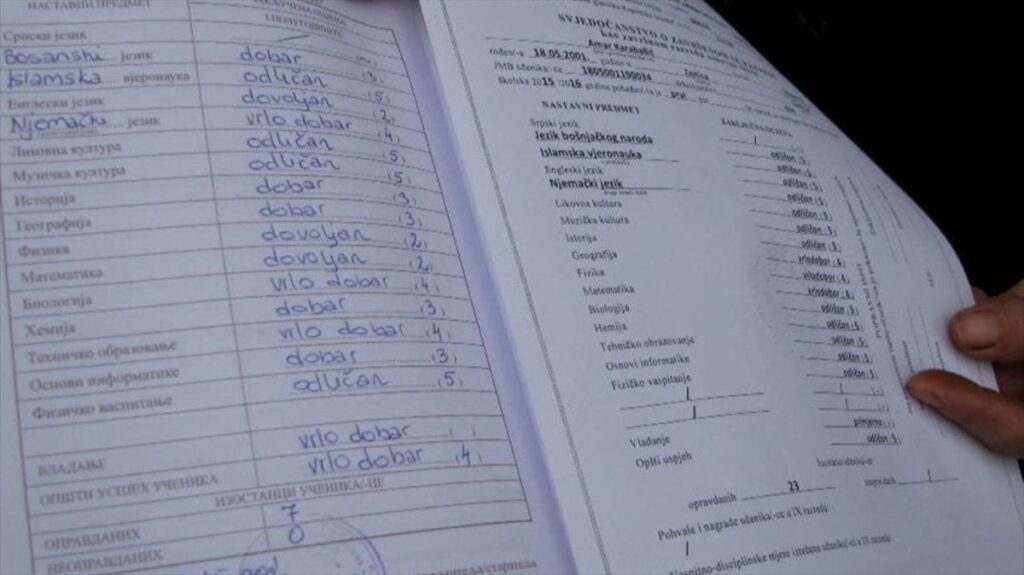 НАСТАВНИ ПРЕДМЕТ
Српски језик /
Bosanski језик dobar (3)
Islamska вјеронаука odličan (5)
Енглески језик dovoljan (2)
Njemački језик vrlo dobar (4)
Ликовна култура odličan (5)
Музичка култура odličan (5)
Историја dobar (3)
Географија dobar (3)
Физика dovoljan (2)
Математика dovoljan (2)
Биологија vrlo dobar (4)
Хемија dobar (3)
Техничко образовање vrlo dobar (4)
Основи информатике dobar (3)
Физичко васпитање odličan (5)
ВЛАДАЊЕ vrlo dobar ( )
ОПШТИ УСПЈЕХ УЧЕНИКА vrlo dobar (4)
ИЗОСТАНЦИ УЧЕНИКА-ЦЕ
ОПРАВДАНИХ 7
НЕОПРАВДАНИХ 0
SVJEDOČANSTVO O
Amar Karabašić
rođen/-a 18.05.2001 godine u Zenica
JMB učenika/-ce 1805001190034
školske 2015 /2016 godine pohađao/la je prvi put
NASTAVNI PREDMET ZAKLJUČNA OCJENA
Srpski jezik /
Jezik bošnjačkog naroda odličan (5)
Islamska vjeronauka odličan (5)
Engleski jezik odličan (5)
Njemački jezik odličan (5)
Likovna kultura odličan (5)
Muzička kultura odličan (5)
Istorija odličan (5)
Geografija vrlodobar (4)
Fizika vrlodobar (4)
Matematika vrlodobar (4)
Biologija odličan (5)
Hemija odličan (5)
Tehničko obrazovanje odličan (5)
Osnovi informatike odličan (5)
Fizičko vaspitanje odličan (5)
/ /
/ /
Vladanje primjerno
Opšti uspjeh odličan (5)
Izostanci učenika/-ce
opravdanih 23 /
Pohvale i nagrade učenika/-ce u IX razredu
/